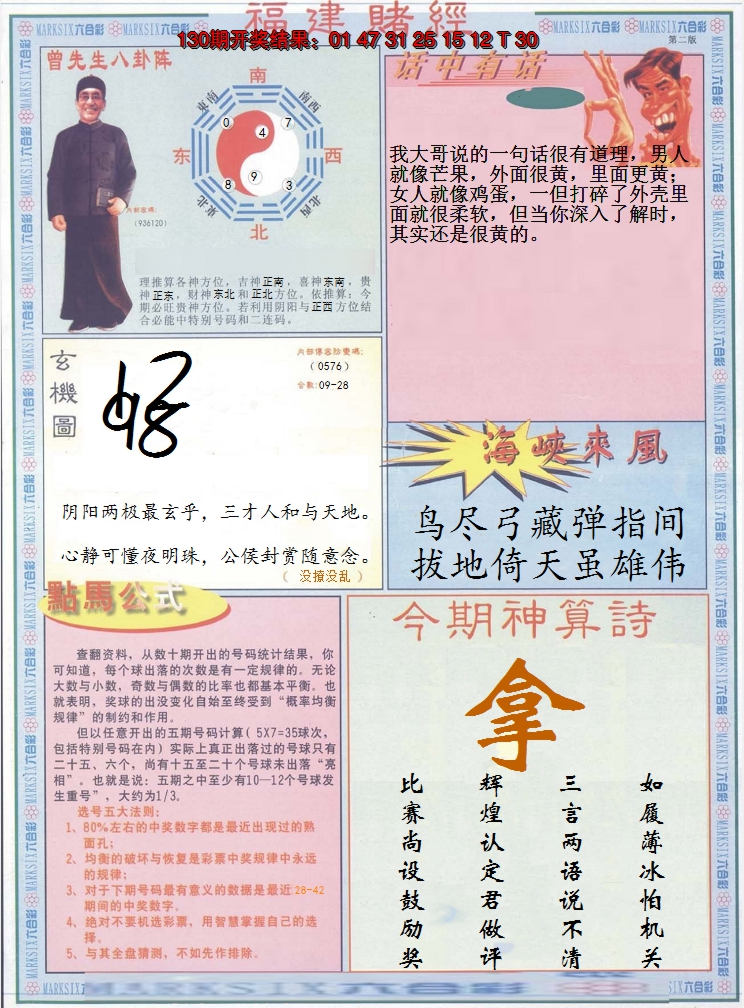 福建賭經
130期开奖结果：01 47 31 25 15 12 T 30
第二版
MARKSIX六合彩
曾先生八卦阵
南
东南
南西
0
4
7
东
西
8
9
3
東北
北西
北
内部密碼:
(936120)
理推算各神方位，吉神正南，喜神东南，贵
神正东，财神东北和正北方位。依推算：今
期必旺贵神方位。若利用阴阳与正西方位结
合必能中特别号码和二连码。
话中有话
我大哥说的一句话很有道理，男人
就像芒果，外面很黄，里面更黄；
女人就像鸡蛋，一但打碎了外壳里
面就很柔软，但当你深入了解时，
其实还是很黄的。
玄機圖
(0576)
合数:09-28
阴阳两极最玄乎，三才人和与天地。
心静可懂夜明珠，公侯封赏随意念。
（ 没撩没乱 ）
海峡來風
鸟尽弓藏弹指间
拔地倚天虽雄伟
點馬公式
查翻资料，从数十期开出的号码统计结果，你
可知道，每个球出落的次数是有一定规律的。无论
大数与小数，奇数与偶数的比率也都基本平衡。也
就表明，奖球的出没变化自始至终受到“概率均衡
规律”的制约和作用。
但以任意开出的五期号码计算( 5X7=35球次，
包括特别号码在内) 实际上真正出落过的号球只有
二十五、六个，尚有十五至二十个号球未出落“亮
相”。也就是说：五期之中至少有10—12个号球发
生重号”，大约为1/3。
选号五大法则:
1、80%左右的中奖数字都是最近出现过的熟
面孔；
2、均衡的破坏与恢复是彩票中奖规律中永远
的规律；
3、对于下期号码最有意义的数据是最近28-42
期间的中奖数字。
4、绝对不要机选彩票，用智慧掌握自己的选
择。
5、与其全盘猜测，不如先作排除。
今期神算詩
拿
如履薄冰怕机关
三言两语说不清
辉煌认定君做评
比赛尚设鼓励奖